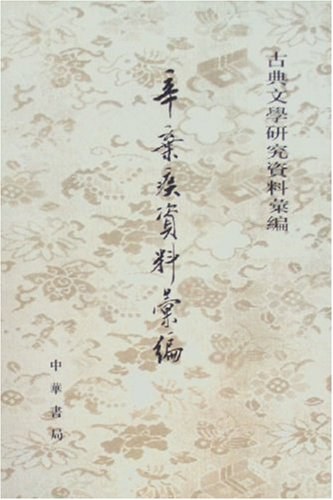 古典文學研究資料彙編
辛棄疾資料彙編
中華書局